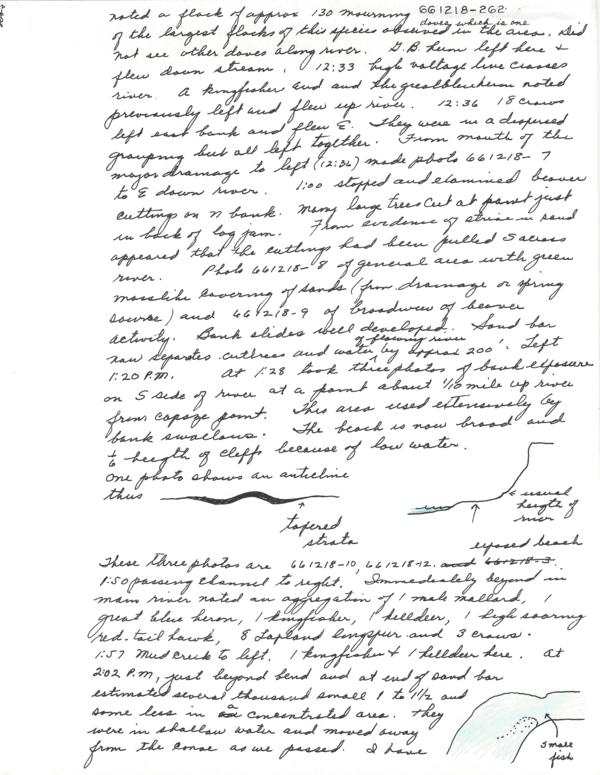 661218-262
noted a flock of approx 130 mourning doves which is one
of the largest flocks of this species observed in the area. Did
not see other doves along river. G.B. heron left here +
flew down stream. 12:33 high voltage line crosses
river. A kingfisher and and the great blue heron noted
previously left and flew up river. 12:36 18 crows
left east bank and flew E. They were in a dispersed
grouping but all left together. From mouth of the
major drainage to left (12:36) made photo 661218-7
to E down river. 1:00 stopped and examined beaver
cuttings on N bank. Many large trees cut at point just
in back of log jam. From evidence of striae in sand
appeared that the cuttings had been pulled S across
river. Photo 661218-8 of general area with green
mosslike covering of sands (from drainage or spring
source) and 661218-9 of broadview of beaver
activity. Bank slides well developed. Sand bar
now separates cuttrees and water of flowing river by approx 200'. Left
1:20 P.M. At 1:28 took three photos of bank exposure
on S side of river at a point about 1/10 mile up river
from capoge point. This area used extensively by
bank swallows. The beach is now broad and
1/6 heigth of cliffs because of low water.
One photo shows an anticline
thus
tapered
strata
usual
heigth of
river
exposed beach
These three photos are 661218-10, 661218-12. and 661218-3.
1:50 passing channel to right. Immediately beyond in
main river noted an aggregation of 1 male mallard, 1
great blue heron, 1 kingfisher, 1 killdeer, 1 high soaring
red-tail hawk, 8 Lapland longspur and 3 crows.
1:57 Mud Creek to left. 1 kingfisher + 1 killdeer here. At
2:02 P.M, just beyond bend and at end of sand bar
estimated several thousand small 1 to 1 1/2 and
some less in a concentrated area. They
were in shallow water and moved away
from the canoe as we passed. I have
small
fish